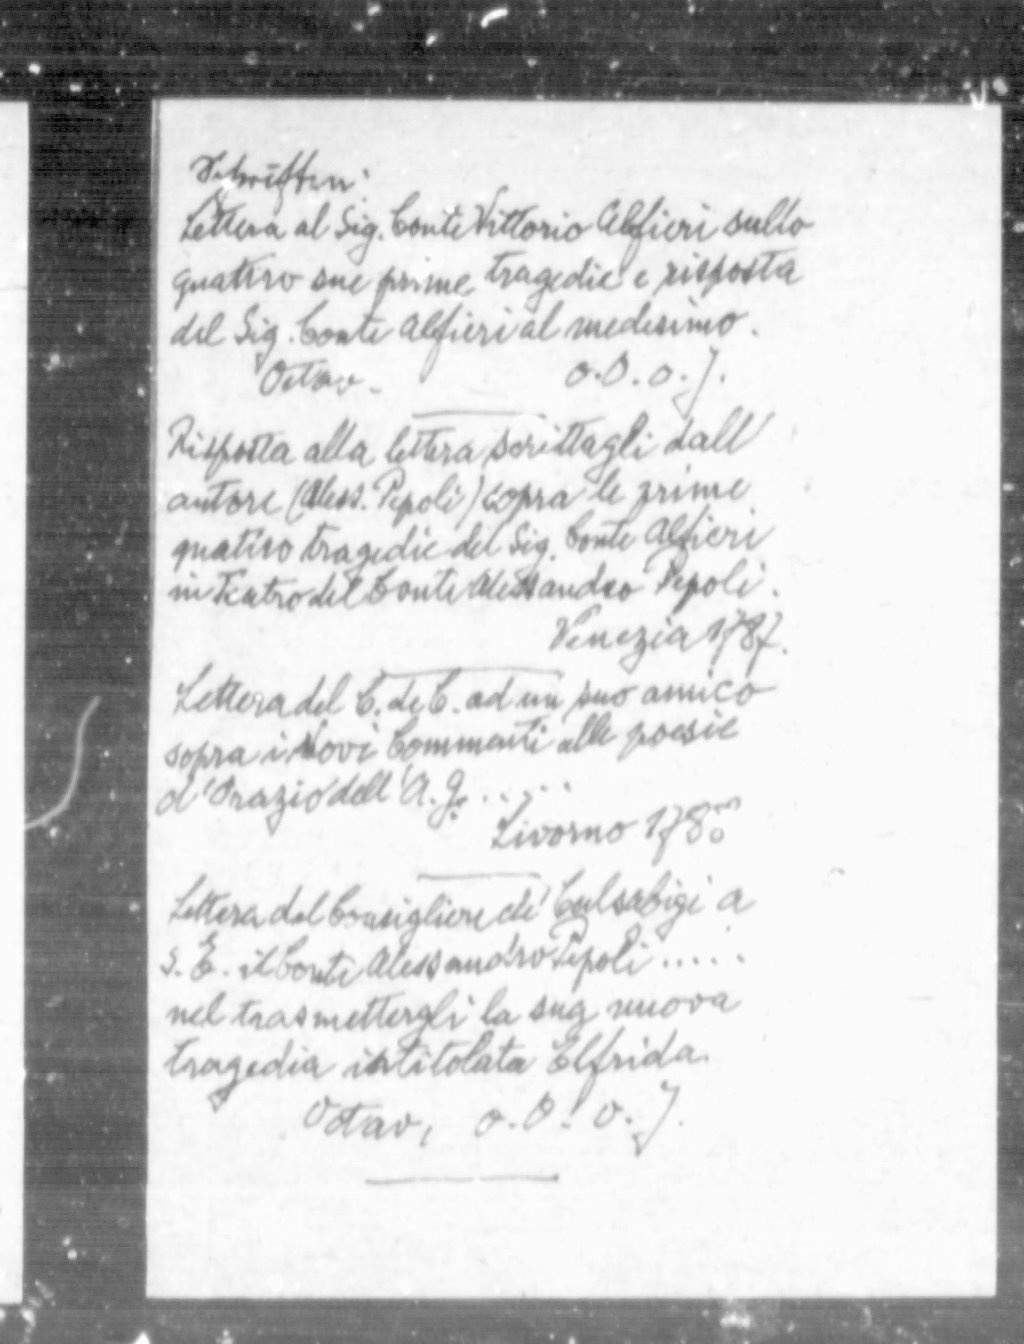 Schriften:
Lettera al Sig. Conte Vittorio Alfieri sullo
quattro sue prime tragedie e risposta
del Sig. Conte Alfieri al medesimo.
Octav. o. O. o. J.
Risposta alla lettera scrittagli dall'
autore (Aless. Pepoli) sopra le prime
quattro tragedie del Sig. Conte Alfieri
in Teatro del Conte Alessandro Pepoli.
Venezia 1787.
Lettera del C. de C. ad un suo amico
sopra i Novi Commenti alle poesie
d'Orazio dell' A. G. .....
Livorno
Lettera del Consigliere de' Calsabigi a
S. E. il Conte Alessandro Pepoli .....
nel trasmettergli la sua nuova
tragedia intitolata Elfrida.
Octav, o. O. o. J.